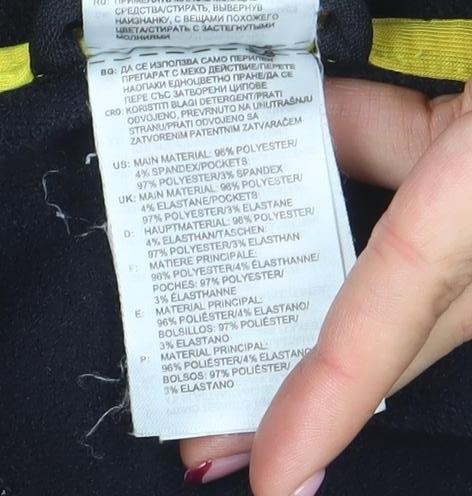 СРЕДСТВА/СТИРАТЬ, ВЫВЕРНУВ
НАИЗНАНКУ, С ВЕЩАМИ ПОХОЖЕГО
ЦВЕТА/СТИРАТЬ С ЗАСТЕГНУТЫМИ
МОЛНИЯМИ
BG: ДА СЕ ИЗПОЛЗВА САМО ПЕРИЛЕН
ПРЕПАРАТ С МЕКО ДЕЙСТВИЕ/ПЕРЕТЕ
НАОПАКИ ЕДНОЦВЕТНО ПРАНЕ/ДА СЕ
ПЕРЕ СЪС ЗАТВОРЕНИ ЦИПОВЕ
CRO: KORISTITI BLAGI DETERGENT/PRATI
ODVOJENO, PREVRNUTO NA UNUTRAŠNJU
STRANU/PRATI ODVOJENO SA
ZATVORENIM PATENTNIM ZATVARAČEM
US: MAIN MATERIAL: 96% POLYESTER/
4% SPANDEX/POCKETS:
97% POLYESTER/3% SPANDEX
UK: MAIN MATERIAL: 96% POLYESTER/
4% ELASTANE/POCKETS:
97% POLYESTER/3% ELASTANE
D: HAUPTMATERIAL: 96% POLYESTER/
4% ELASTHAN/TASCHEN:
97% POLYESTER/3% ELASTHAN
F: MATIERE PRINCIPALE:
96% POLYESTER/4% ELASTHANNE/
POCHES: 97% POLYESTER/
3% ELASTHANNE
E: MATERIAL PRINCIPAL:
96% POLIÉSTER/4% ELASTANO/
BOLSILLOS: 97% POLIÉSTER/
3% ELASTANO
P: MATERIAL PRINCIPAL:
96% POLIÉSTER/4% ELASTANO
BOLSOS: 97% POLIÉSTER/
3% ELASTANO